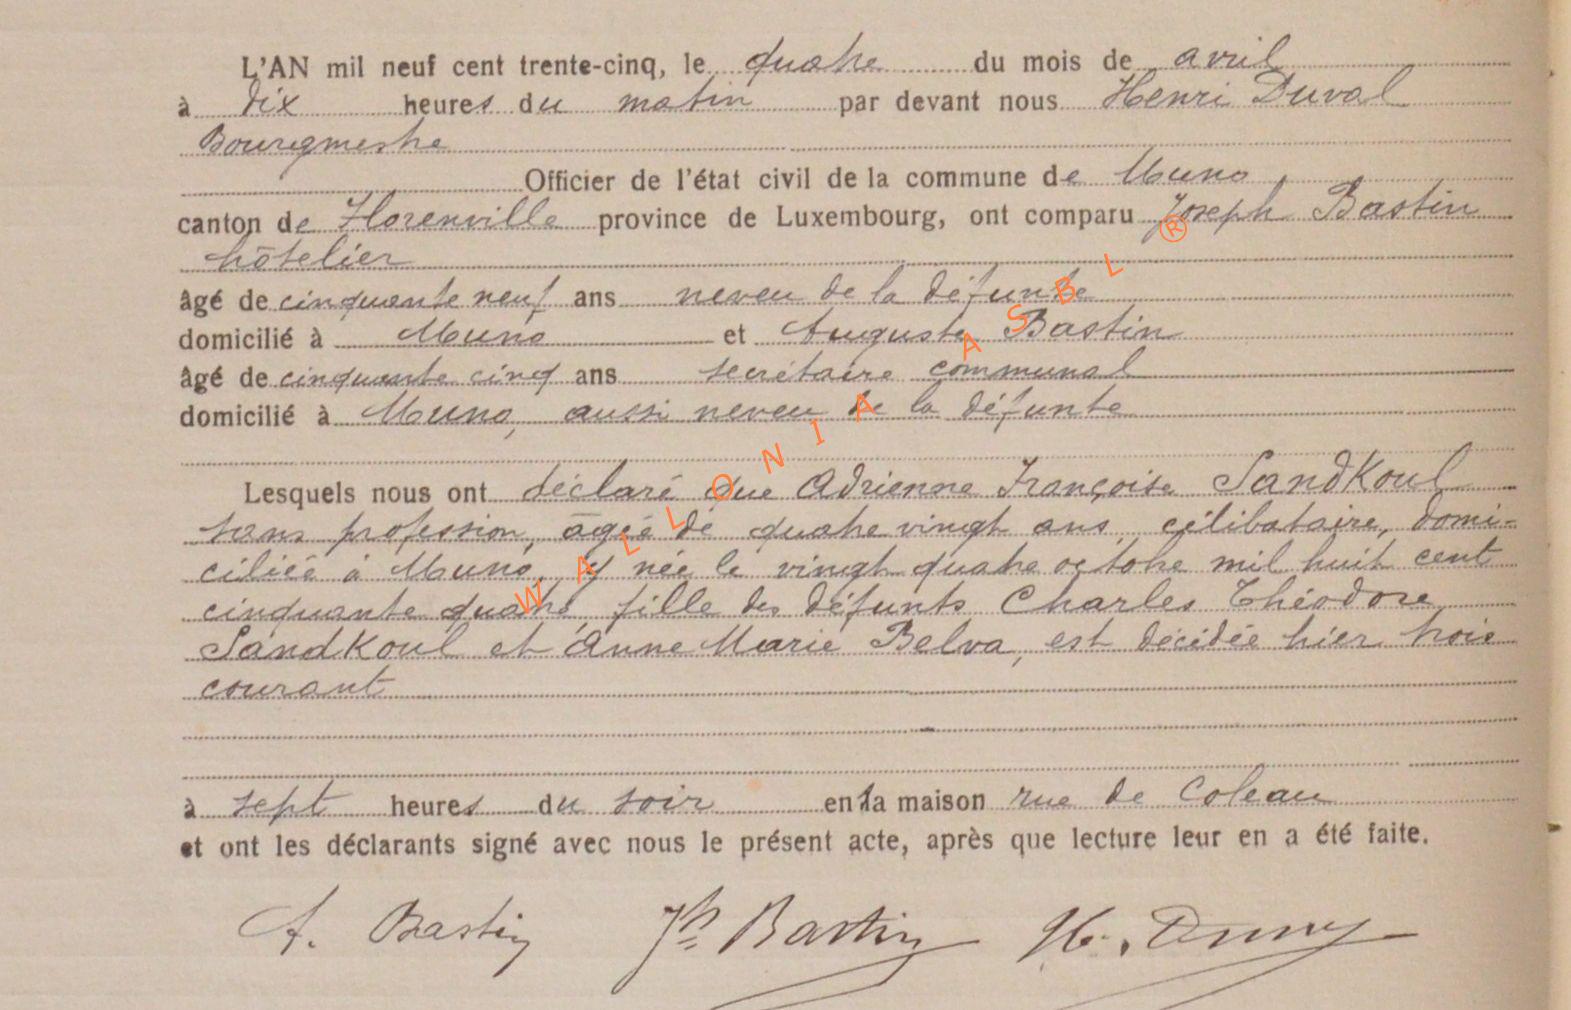 L'AN mil neuf cent trente-cinq, le quatre du mois de avril
à dix heures du matin par devant nous Henri Duval
Bourgmestre
Officier de l'état civil de la commune de Muno
canton de Florenville province de Luxembourg, ont comparu Joseph Bastin
hôtelier
âgé de cinquante neuf ans neveu de la défunte
domicilié à Muno et Auguste Bastin
âgé de cinquante cinq ans secrétaire communal
domicilié à Muno, aussi neveu de la défunte
Lesquels nous ont déclaré que Adrienne Françoise Sandkoul
sans profession, âgée de quatre vingt ans, célibataire, domi-
ciliée à Muno, y née le vingt quatre octobre mil huit cent
cinquante quatre, fille des défunts Charles Théodore
Sandkoul et Anne Marie Belva, est décédée hier trois
courant
à sept heures du soir en la maison rue de Coleau
et ont les déclarants signé avec nous le présent acte, après que lecture leur en a été faite.
A. Bastin Jh Bastin H. Duval
WALLONIA ASBL ®